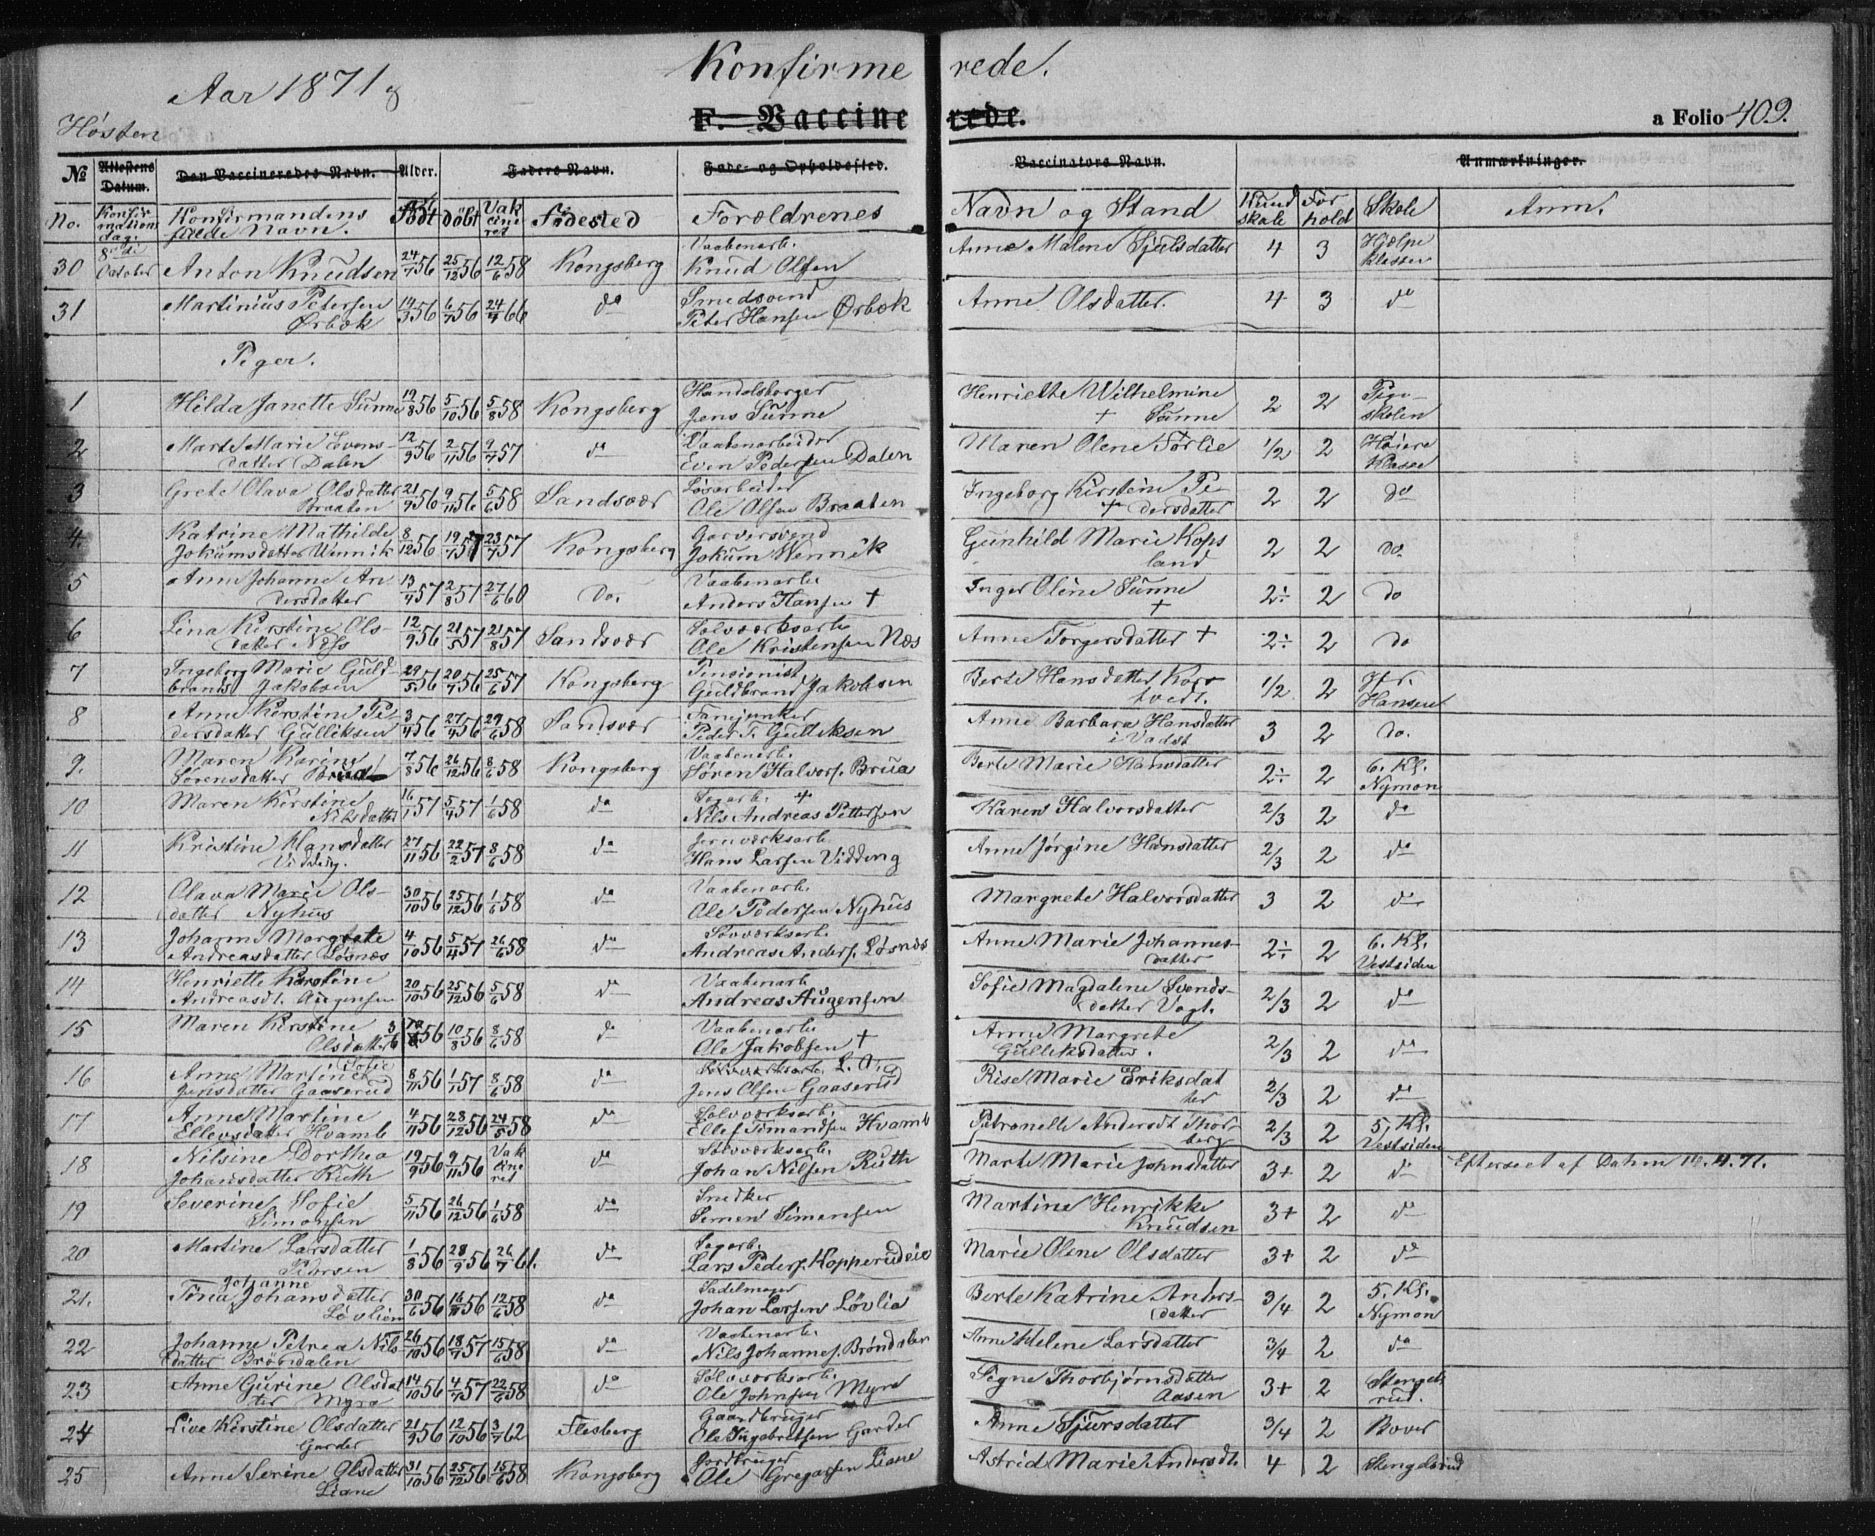 Konfirmerede.
Aar 1871
Høsten
F. Vaccinerede.
a Folio 409.
№ Attestens Datum. Den Vaccineredes Navn. Alder. Faders Navn. Føde- og Opholdssted. Vaccinators Navn. Anmærkninger.
No. Konfirmationsdag. Konfirmandens fulde Navn. Født Døbt Vakcineret Fødested Forældrenes Navn og Stand Kundskab Forhold Skole Anm.
30 8de Oktober Anton Knudsen 24/7 56 25/12 56 12/6 58 Kongsberg Vaabenarb. Knud Olsen Anne Malene 4 3 Hjælpe Klassen
31 Martinius Pedersen Ørbæk 14/3 56 6/7 56 24/7 66 do Smedsvend Peter Hansen Ørbæk Anne Olsdatter. 4 3 do
Piger.
1 Hilda Janette Sunne 19/8 56 5/10 56 5/8 58 Kongsberg Handelsborger Jens Sunne Henriette Wilhelmine Sunne + 2 2 Pigeskolen
2 Marte Marie Evensdatter Dalen 12/9 56 2/11 56 9/7 57 do Vaabenarbeider Even Pedersen Dalen Maren Olene Sørlie 1/2 2 Høiere Klasse
3 Grete Olava Olsdatter Braaten 21/9 56 9/11 56 5/6 58 Sandsvær Løsarbeider Ole Olsen Braaten Ingeborg Kirstine Pedersdatter 2 2 do
4. Katrine Mathilde Jokumsdatter Wennik 8/12 56 19/7 57 23/7 57 Kongsberg Garversvend Jokum Wennik Gunhild Marie Kopsland 2 2 do.
5 Anne Johanne Andersdatter 13/4 57 2/8 57 27/6 60 Do. Vaabenarb. Anders Hansen + Inger Oline Sunne + 2÷ 2 do
6 Lina Kirstine Olsdatter Næss 12/9 56 21/5 57 21/8 57 Sandsvær Sølvverksarb. Ole Kristensen Næs Anne Torgersdatter + 2÷ 2 do
7 Ingeborg Marie Guldbrands Jakobsen 29/5 56 20/7 56 25/6 57 Kongsberg Pensionist Guldbrand Jakobsen Berte Hansdatter 1/2 2 Hansen
8 Anne Kirstine Pedersdatter Gulliksen 3/4 56 27/4 56 29/6 58 Sandsvær Fanejunker Peder T. Gulliksen Anne Barbara Hansdatter 3 2 do.
9. Maren Karine Sørensdatter Brua 7/8 56 26/12 56 8/6 58 Kongsberg Vaabenarb. Søren Halvors. Brua Berte Marie Hansdatter 2÷ 2 6. Kl. Nymoen
10 Maren Kirstine Nilsdatter 16/1 57 5/4 57 1/6 58 do Sagarb. Nils Andreas Pettersen Karen Halvorsdatter 2/3 2 do
11 Kristine Hansdatter Vidding. 27/11 56 22/2 57 8/6 58 do Jernværksarb. Hans Larsen Vidding Anne Jørgine Hansdatter 2/3 2 do
12 Olava Marie Olsdatter Nyhus 30/10 56 25/12 56 1/6 58 do Vaabenarb. Ole Pedersen Nyhus Margrete Halvorsdatter 3 2 do
13 Johanne Margrete Andreasdatter Løsnæs 4/10 56 5/4 57 26/6 58 do Sølvverksarb. Andreas Anders. Løsnæs Anne Marie Johannesdatter 2÷ 2 6. Kl. Vestsiden
14 Henriette Kirstine Andreasdt. Augensen 20/10 56 25/12 56 5/6 58 do Vaabenarb. Andreas Augensen Sofie Magdalene Svendsdatter Vogt. 2/3 2 do
15 Maren Kirstine Olsdatter 56 10/8 56 8/6 58 do Vaabenarb. Ole Jakobsen + Anne Margrete Gulliksdatter. 2/3 2 do
16 Anne Martine Sofie Jensdatter Gaaserud 8/11 56 1/1 57 8/6 58 do Jens Olsen Gaaserud Rise Marie Eriksdatter 2/3 2 do
17 Anne Martine Ellevsdatter Hvamb 4/11 56 28/12 56 24/5 58 do Sølvværksarb. Ellef Simandsen Hvamb Petronelle Andersdt Thorberg 2/3 2 5. Kl. Vestsiden
18 Nilsine Dorthea Johansdatter Ruth 19/9 56 9/11 56 Vakcineret do Sølvværksarb. Johan Nilsen Ruth Marte Marie Johnsdatter 3+ 2 do Efterseet af Dahm
19 Severine Sofie Simonsen 5/11 56 26/12 56 1/6 58 do Snedker Simen Simensen Martine Henrikke Knudsen 3+ 2 do
20 Martine Larsdatter Pedersen 1/8 56 28/9 56 26/7 61. do Sagarb. Lars Peders. Kopperudeie Marie Olene Olsdatter 3+ 2 do
21. Tina Johanne Johansdatter Løvlien 30/6 56 16/11 56 12/6 58 do Sadelmager Johan Larsen Løvlia Berte Katrine Andersdatter 3/4 2 5. Kl. Nymoen
22 Johanne Petrea Nilsdatter Bröndalen 26/10 56 18/7 57 15/6 58 do Vaabenarb. Nils Johannes. Brøndalen Anne Helene Larsdatter 3/4 2 do
23 Anne Gurine Olsdatter Myra 14/10 56 4/7 57 22/6 58 do Sølvværksarb. Ole Johnsen Myra Signe Thorbjørnsdatter Aasen 3+ 2 Stengelsrud.
24 Live Kirstine Olsdatter Garder 21/9 56 12/10 56 3/7 62 Flesberg Gaardbruger Ole Ingebretsen Garder Anne Sjursdatter 3/4 2 Bover
25 Anne Serine Olsdatter Liane 31/10 56 25/12 56 15/6 58 Kongsberg Jordbruger Ole Gregarsen Liane Astrid Marie Andersdt 4 2 Stengelsrud